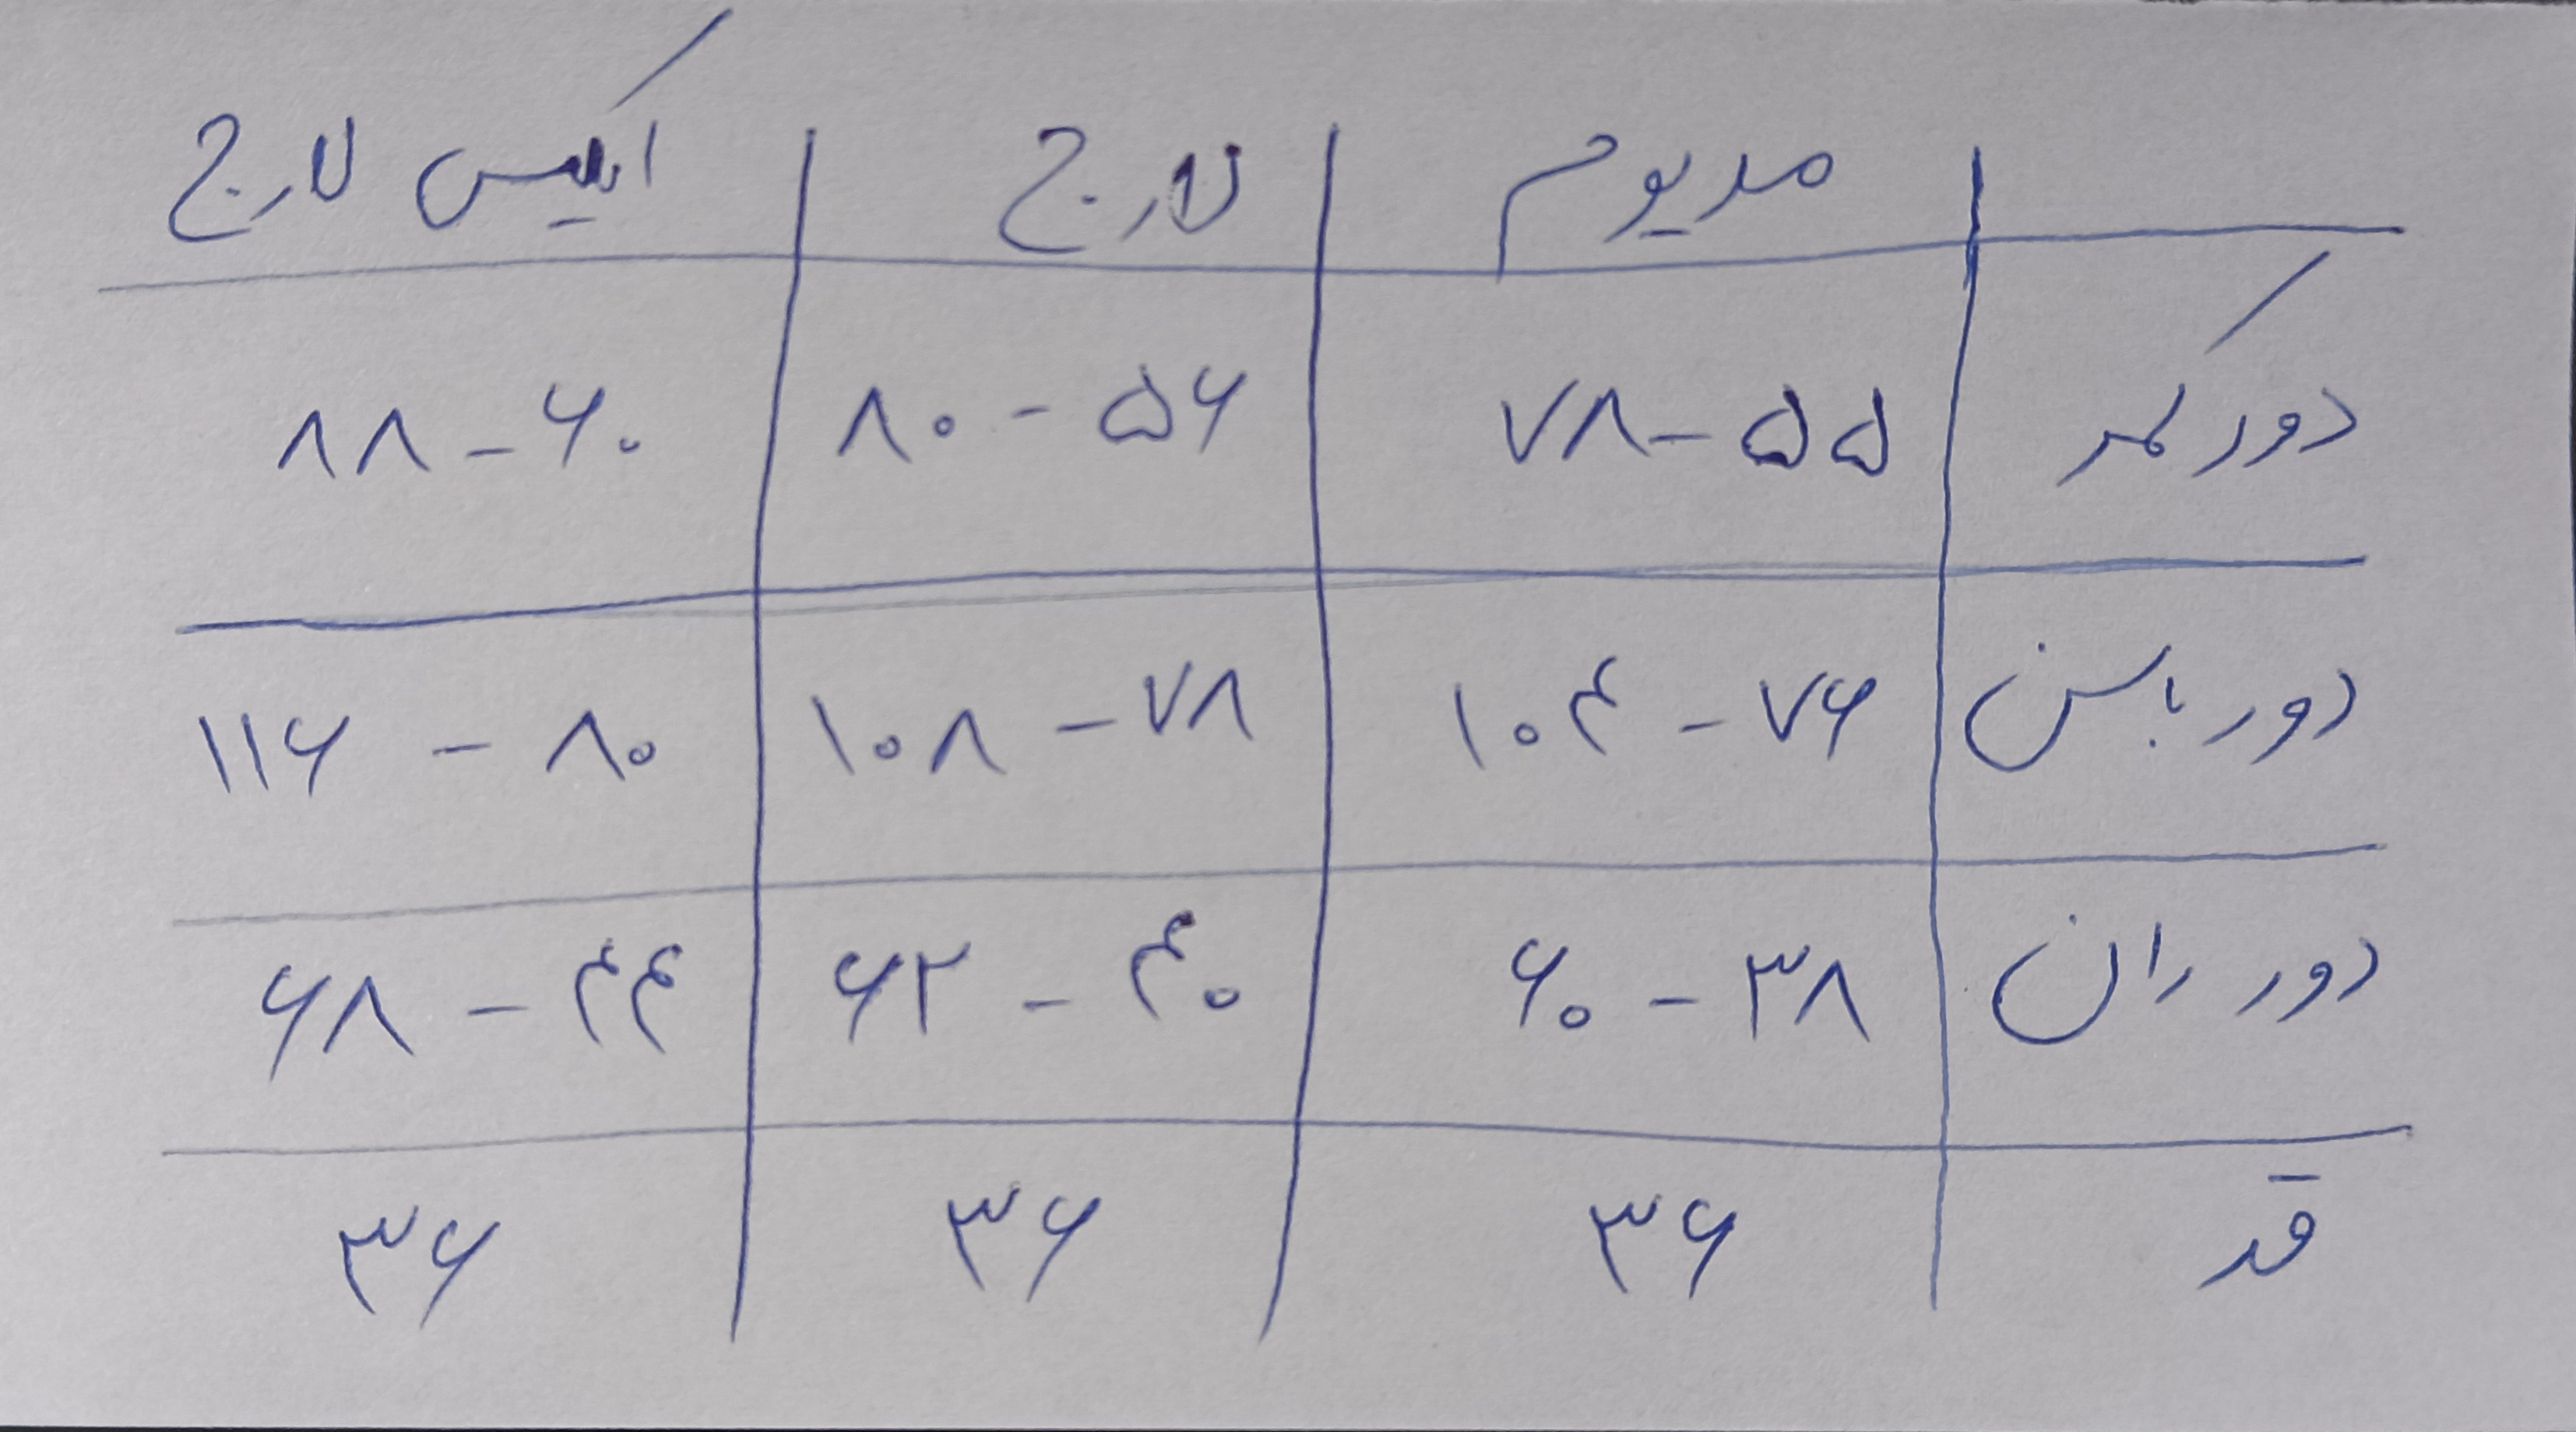 مدیوم لارج ایکس لارج
دور کمر ۵۵-۷۸ ۵۶-۸۰ ۶۰-۸۸
دور باسن ۷۶-۱۰۴ ۷۸-۱۰۸ ۸۰-۱۱۶
دور ران ۳۸-۶۰ ۴۰-۶۲ ۴۴-۶۸
قد ۳۶ ۳۶ ۳۶